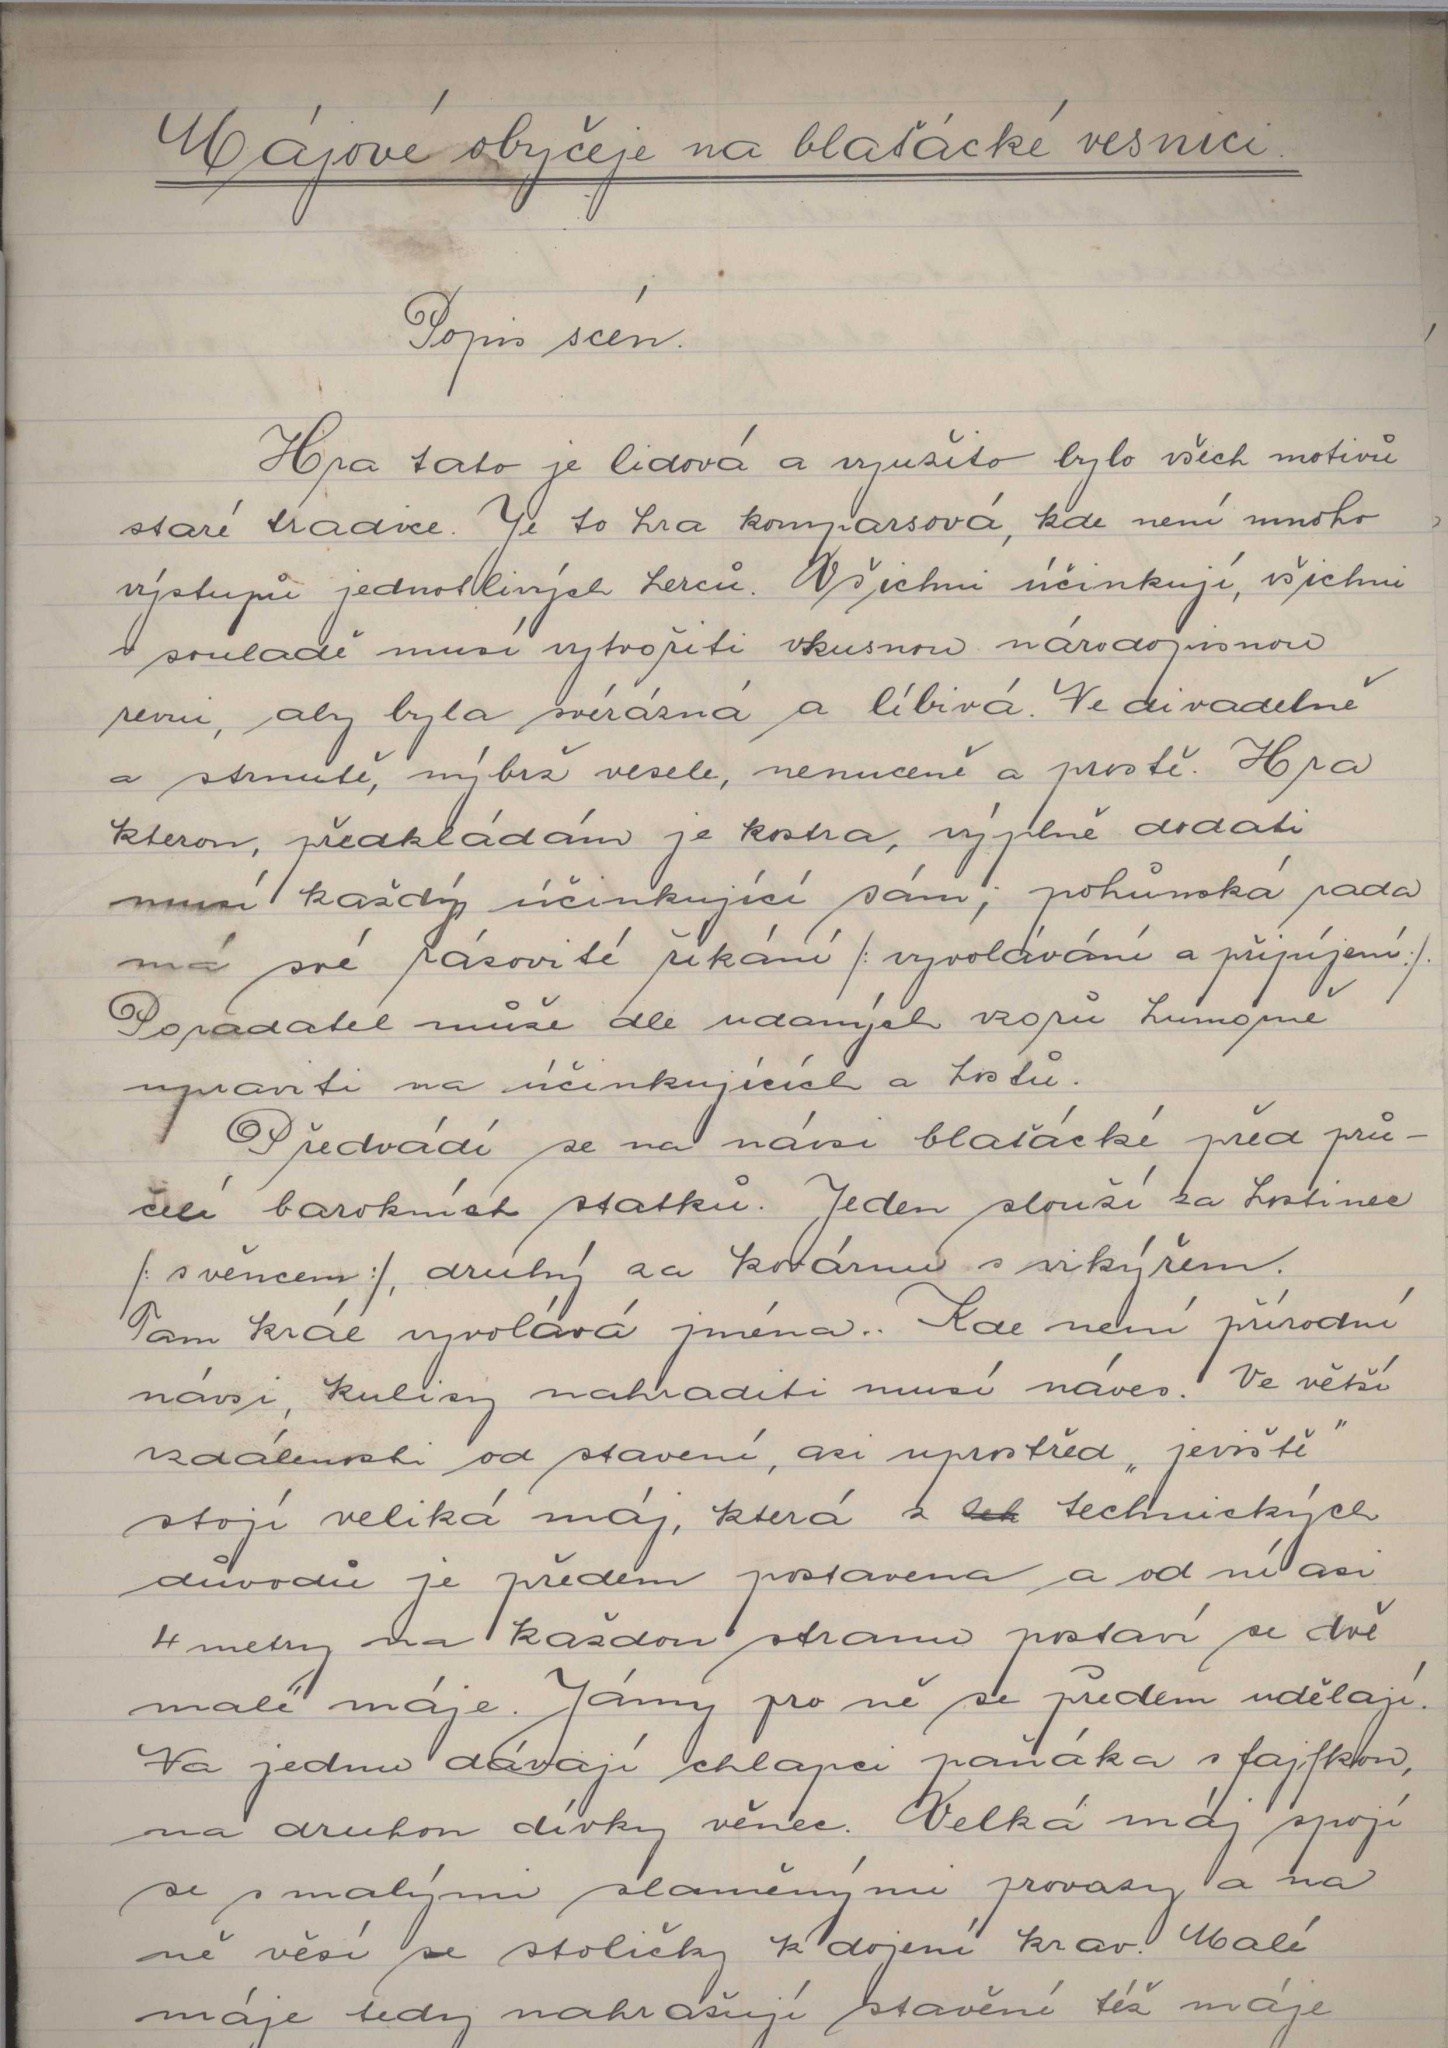 Májové obyčeje na blaťácké vesnici.
Popis scén.
Hra tato je lidová a využito bylo všech motivů
staré tradice. Je to hra komparsová, kde není mnoho
výstupů jednotlivých herců. Všichni účinkují, všichni
v souladě musí vytvořiti vkusnou národopisnou
revui, aby byla svérázná a líbivá. Ne divadelně
a strnutě, nýbrž vesele, nenuceně a prostě. Hra
kterou, předkládám je kostra, výplně dodati
musí každý účinkující sám; pohůnská rada
má své rázovité říkání /: vyvolávání a připíjení :/.
Pořadatel může dle udaných vzorů humorně
upraviti na účinkujících a hostů.
Předvádí se na návsi blaťácké před prů-
čelí barokních statků. Jeden slouží za hostinec
/: s věncem :/, druhý za kovárnu s vikýřem.
Tam král vyvolává jména.. Kde není přírodní
návsi, kulisy nahraditi musí náves. Ve větší
vzdálenosti od stavení, asi uprostřed „jeviště“
stojí veliká máj, která z technických
důvodů je předem postavena a od ní asi
4 metry na každou stranu postaví se dvě
malé máje. Jámy pro ně se předem udělají.
Na jednu dávají chlapci paňáka s fajfkou,
na druhou dívky věnec. Velká máj spojí
se s malými slaměnými provazy a na
ně věsí se stoličky k dojení krav. Malé
máje tedy nahrazují stavění též máje